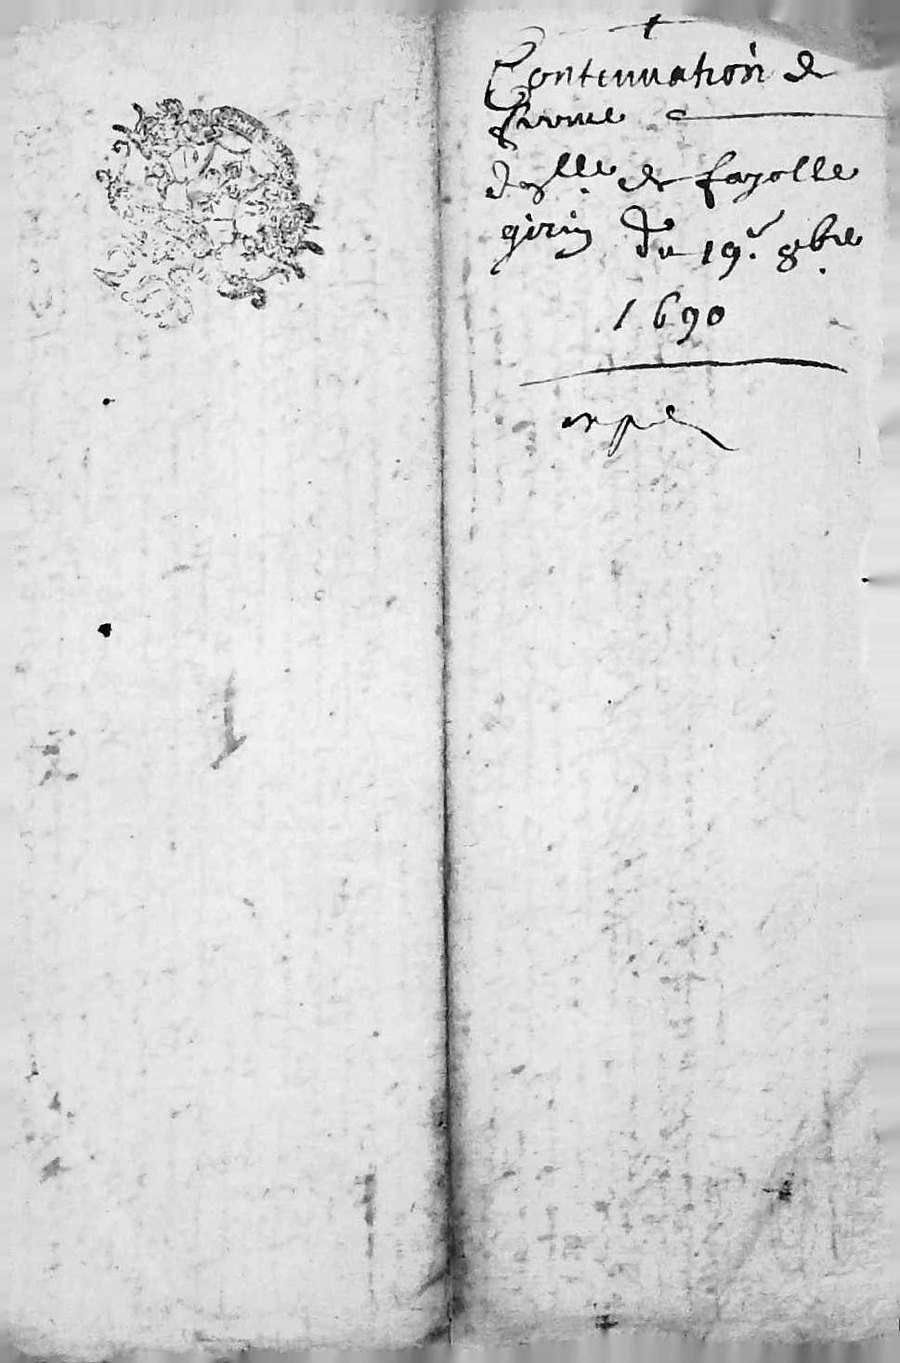 Contenuation de
ferme
de fayolle
girin du 19e 8bre
1690